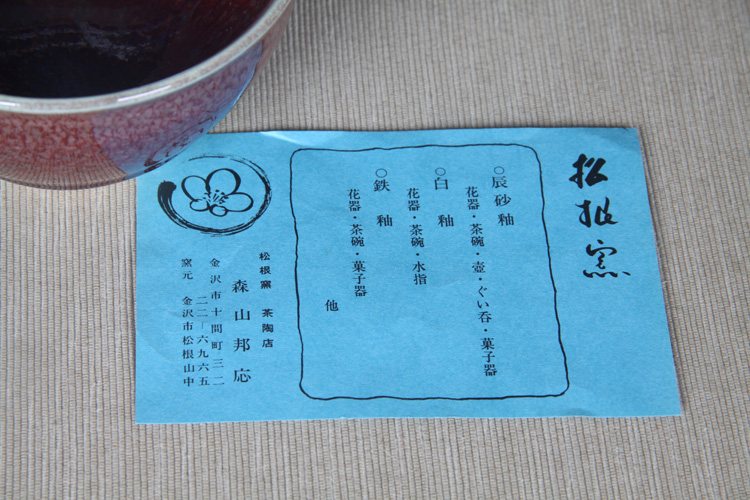 松根窯
○辰砂釉
花器・茶碗・壺・ぐい呑・菓子器
○白釉
花器・茶碗・水指
○鉄釉
花器・茶碗・菓子器
他
松根窯 茶陶店
森山邦応
金沢市十間町三二
二二—六九六五
窯元 金沢市松根山中